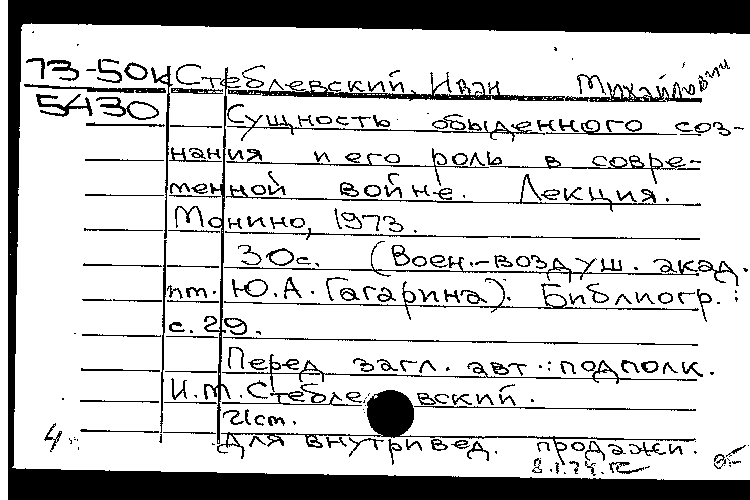 73-50к Стеблевский, Иван Михайлович
5430 Сущность обыденного соз-
нания и его роль в совре-
менной войне. Лекция.
Монино, 1973.
30с. (Воен.-воздуш. акад.
им. Ю.А. Гагарина). Библиогр.:
с. 29.
Перед загл. авт.: подполк.
И.М. Стеблевский.
Для внутривед. продажи.
4